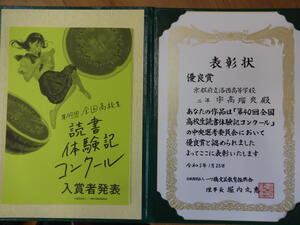 第40回 全国高校生
読書
体験記
コンクール
入賞者発表
表彰状
優良賞
京都府立洛西高等学校
殿
あなたの作品は「第40回全国
高校生読書体験記コンクール」
の中央選考委員会において
優良賞と認められました
よってここに表彰いたします
令和3年1月25日
公益財団法人 一ツ橋文芸教育振興会
理事長 堀内丸惠